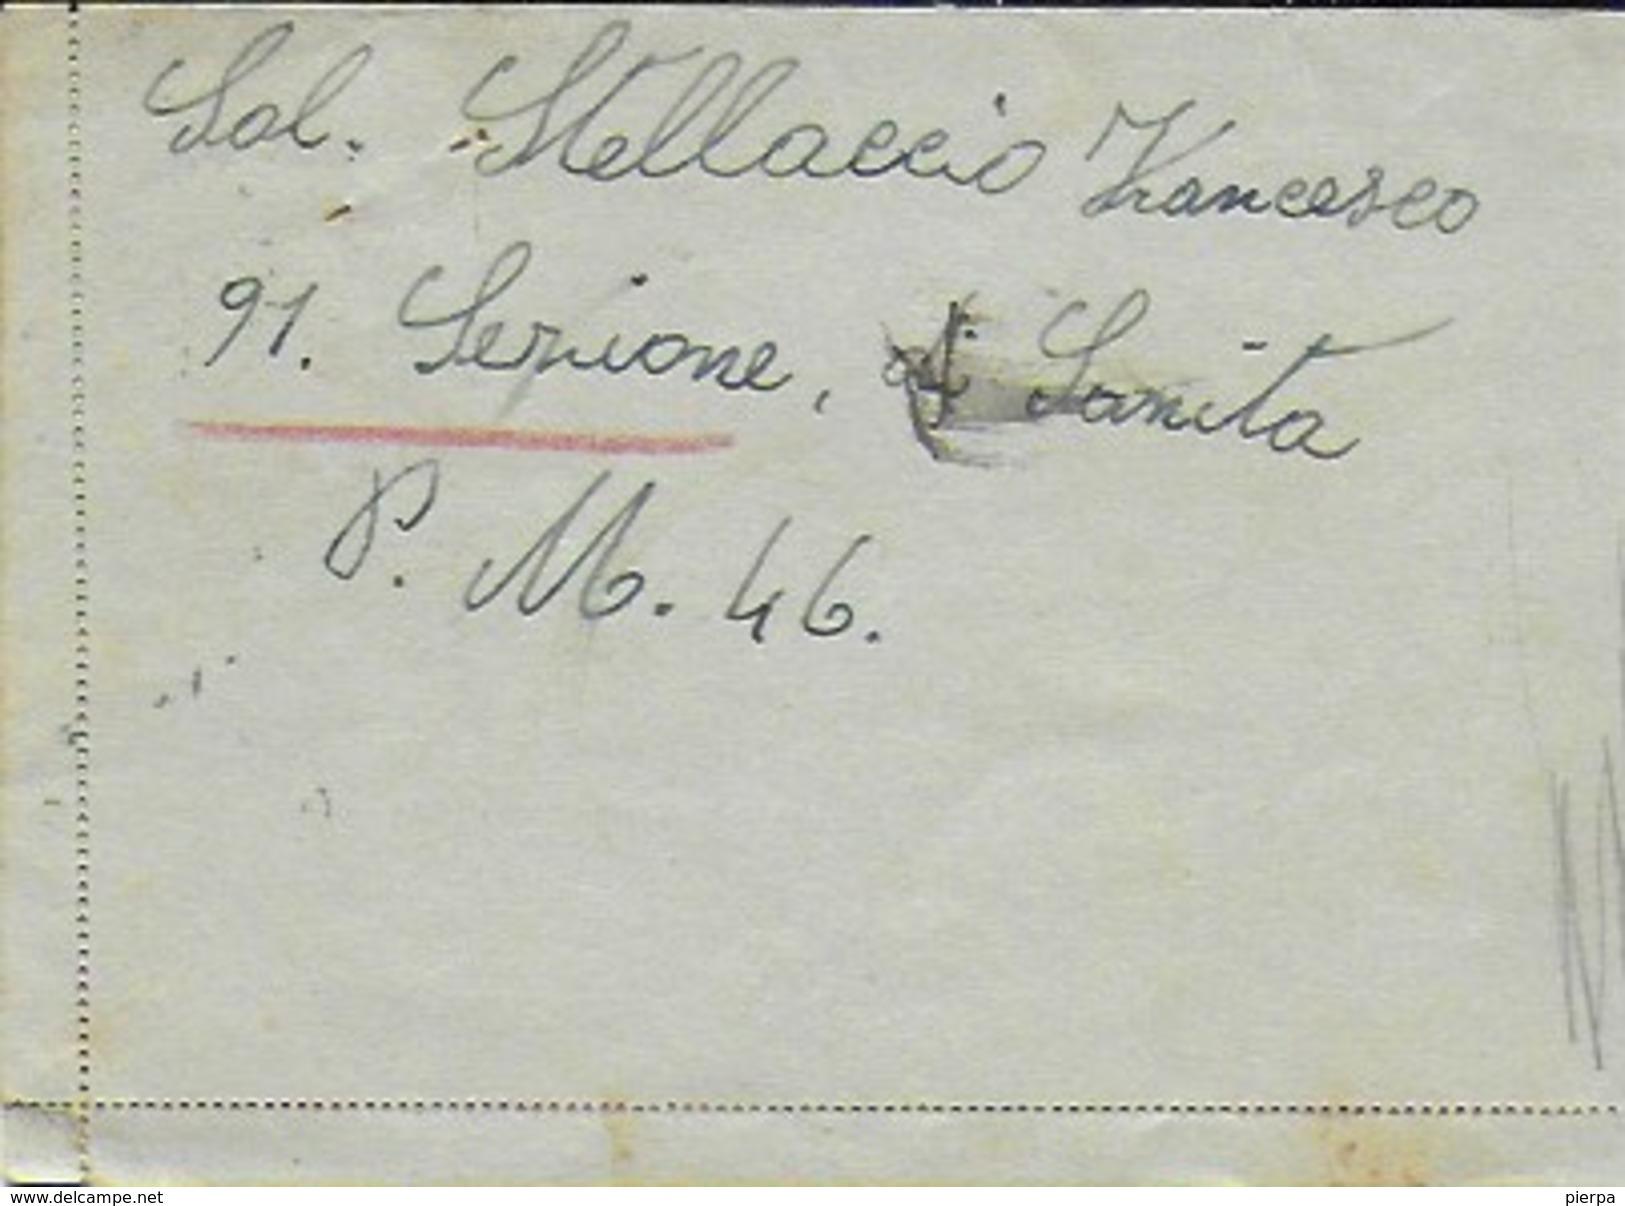 Sol. Stellaccio Francesco
91. Sezione, Sanita
P. M. 46.
www.delcampe.net
pierpa